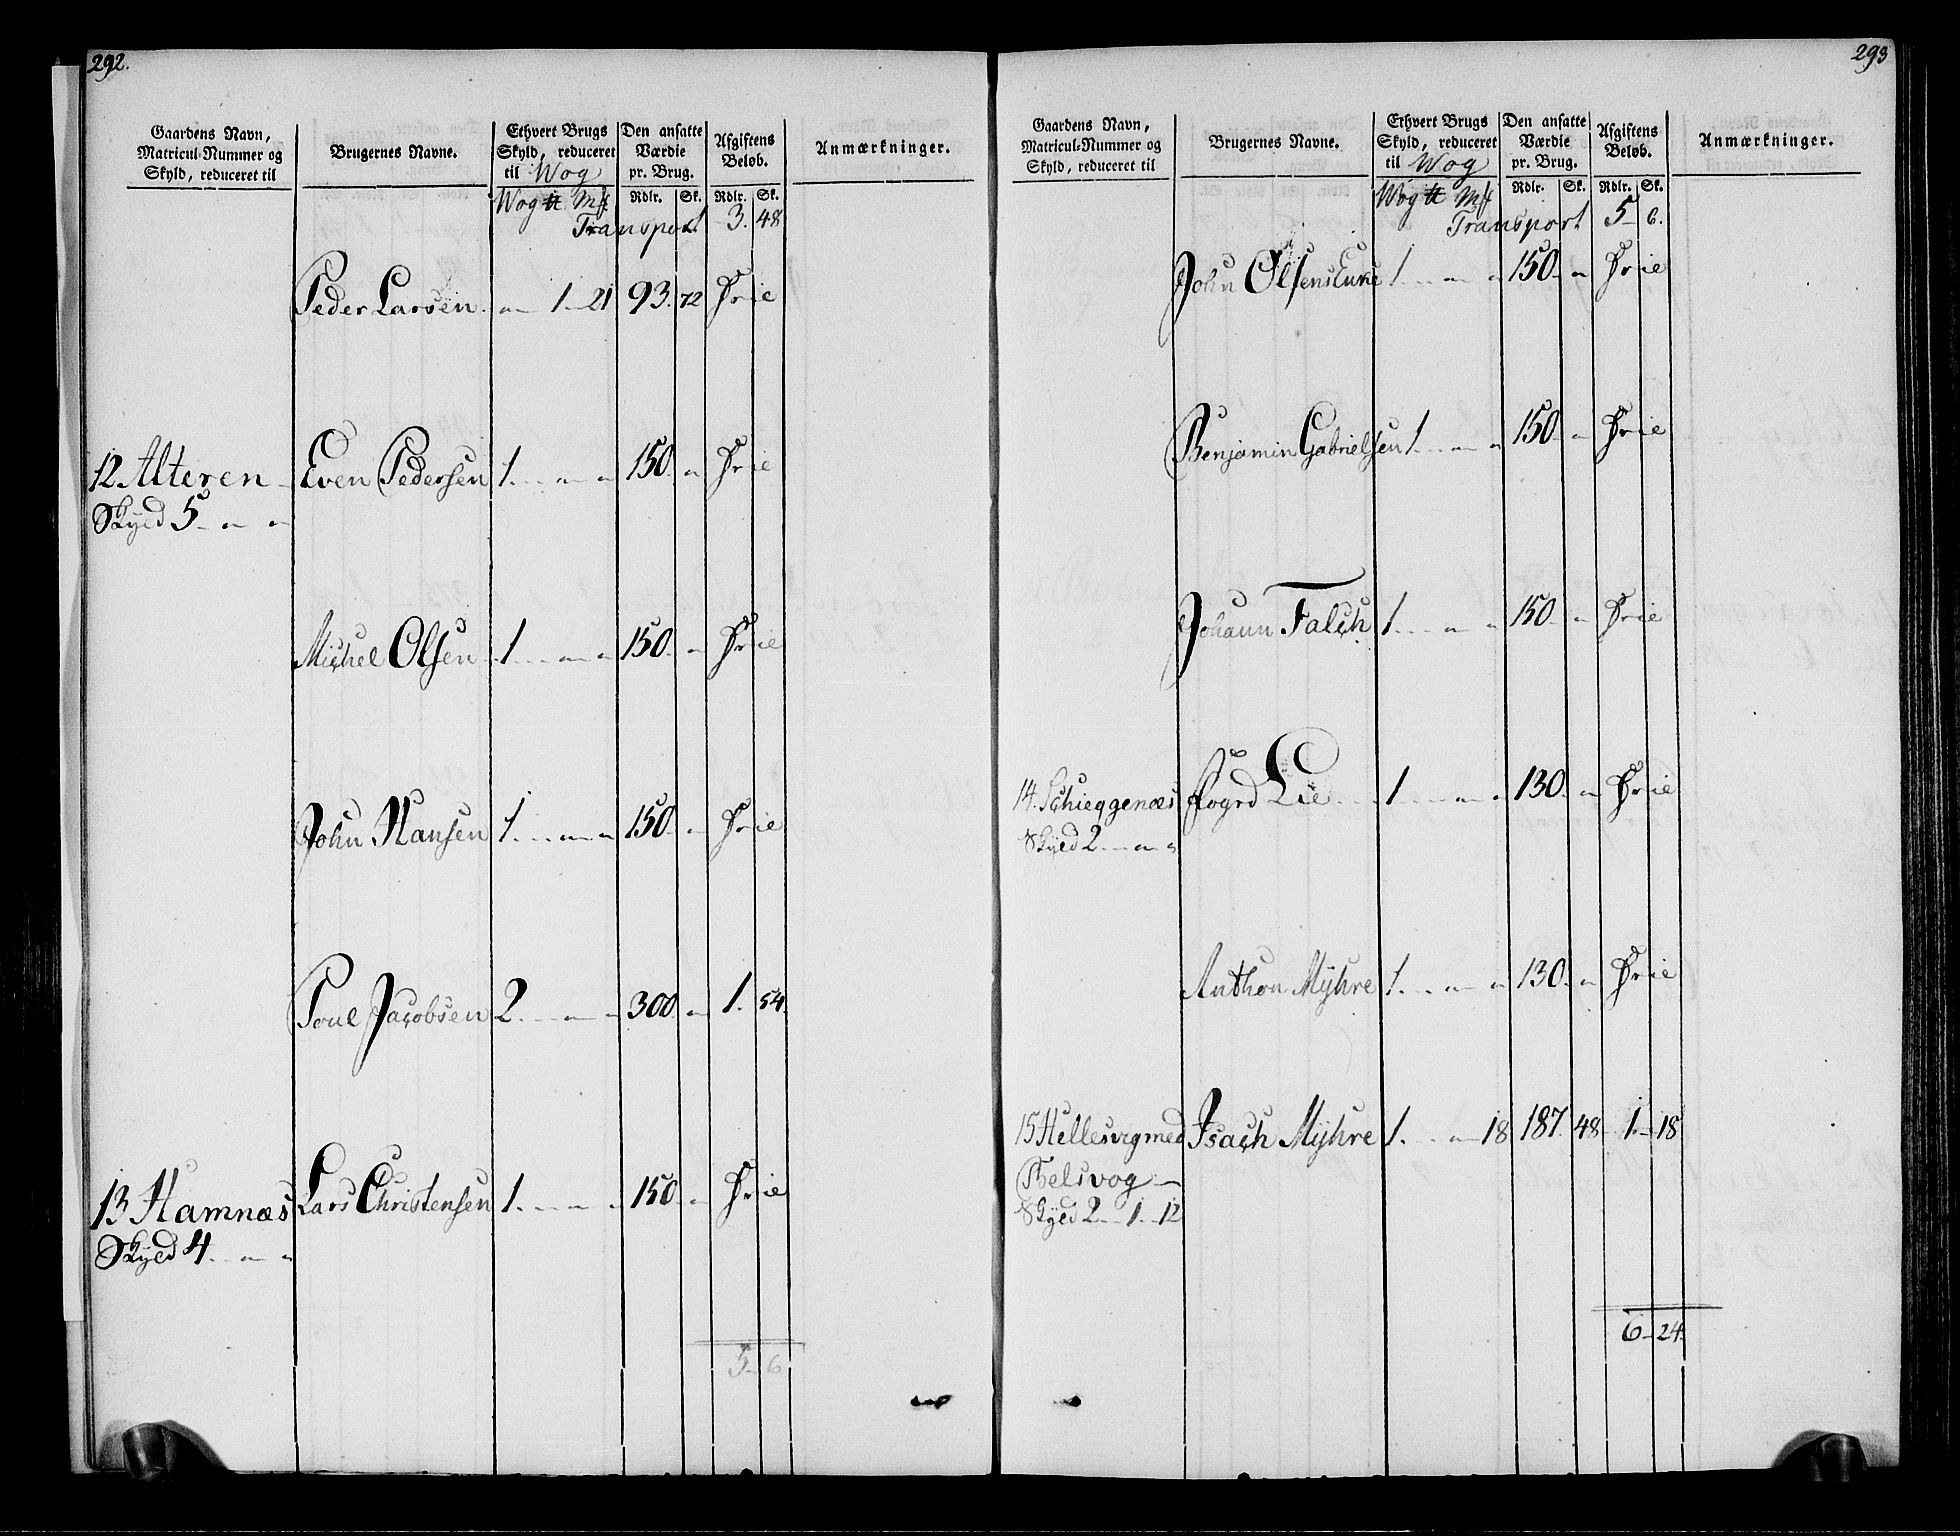 292.
Gaardens Navn, Matricul-Nummer og Skyld, reduceret til
Brugernes Navne.
Ethvert Brugs Skyld, reduceret til Wog
Den ansatte Værdie pr. Brug.
Afgiftens Beløb.
Anmærkninger.
Wog ℔ Mk Rdlr. Sk. Rdlr. Sk.
Transport 3. 48
Peder Larsen. „ 1 21 93. 72 Frie
12 Alteren Even Pedersen 1 „ „ 150. „ Frie
Skyld 5 „ „
Michel Olsen 1 „ „ 150. „ Frie
John Hansen 1 „ „ 150. „ Frie
Poul Jacobsen 2 „ „ 300. „ 1. 54.
13 Hamnæs Lars Christensen 1 „ „ 150. „ Frie
Skyld 4 „ „
5 6
293
Gaardens Navn, Matricul-Nummer og Skyld, reduceret til
Brugernes Navne.
Ethvert Brugs Skyld, reduceret til Wog
Den ansatte Værdie pr. Brug.
Afgiftens Beløb.
Anmærkninger.
Wog ℔ Mk Rdlr. Sk. Rdlr. Sk.
Transport 5 6.
John Olsens Enke 1 „ „ 150. „ Frie
Benjamin Gabrielsen 1 „ „ 150 „ Frie
Johann Falch 1 „ „ 150 „ Frie
14. Fogrd Lie 1 „ „ 130. „ Frie
Skyld 2 „ „
Anthon Myhre 1 „ „ 130. „ Frie
15 Hellesvig med Isach Myhre 1. „ 18 187. 48 1. 18
Belsvog
Skyld 2 1 12
6 24.